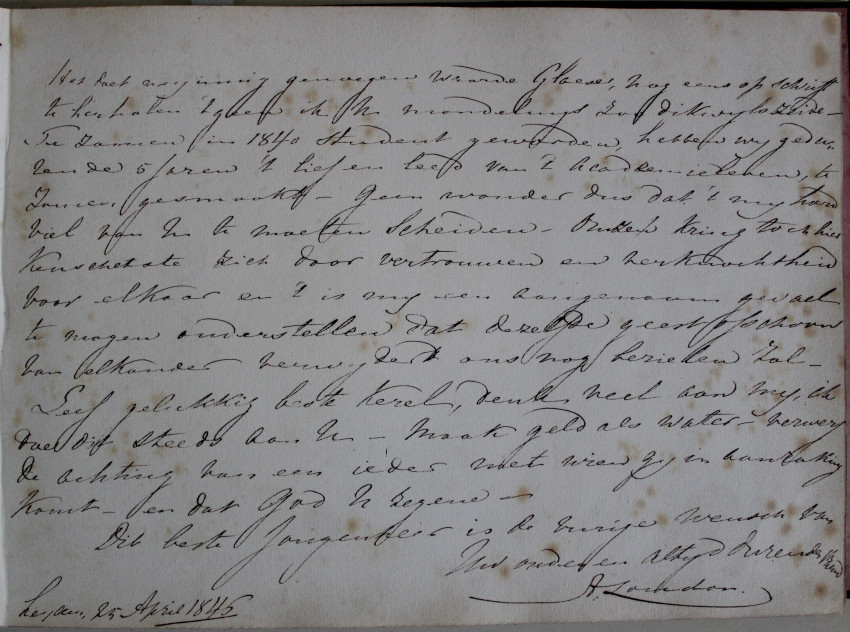 Het doet my innig genoegen waarde Glaeser, nog eens op schrift
te herhalen 't geen ik U mondelings zoo dikwyls zeide —
Te zamen in 1840 student geworden, hebben wy gedu-
rende 5 jaren 't lief en leed van 't Academieleven, te
zamen gesmaakt — Geen wonder dus dat 't my hard
viel van U te moeten scheiden — Onzen kring toch hier
kenschetste zich door vertrouwen en verknochtheid
voor elkaar en 't is my een aangenaam gevoel
te mogen onderstellen dat dezelfde geest ofschoon
van elkander verwydert ons nog bezielen zal —
Leef gelukkig beste Kerel, denk veel aan my, ik
doe dit steeds aan U — Maak geld als water — verwerf
de achting van een ieder met wien gy in aanraking
komt — en dat God U zegene —
Dit beste Jongenheer is de vurige wensch van
Uw ouden en altyd durenden Vriend
A. Loudon.
Leyden, 25 April 1845